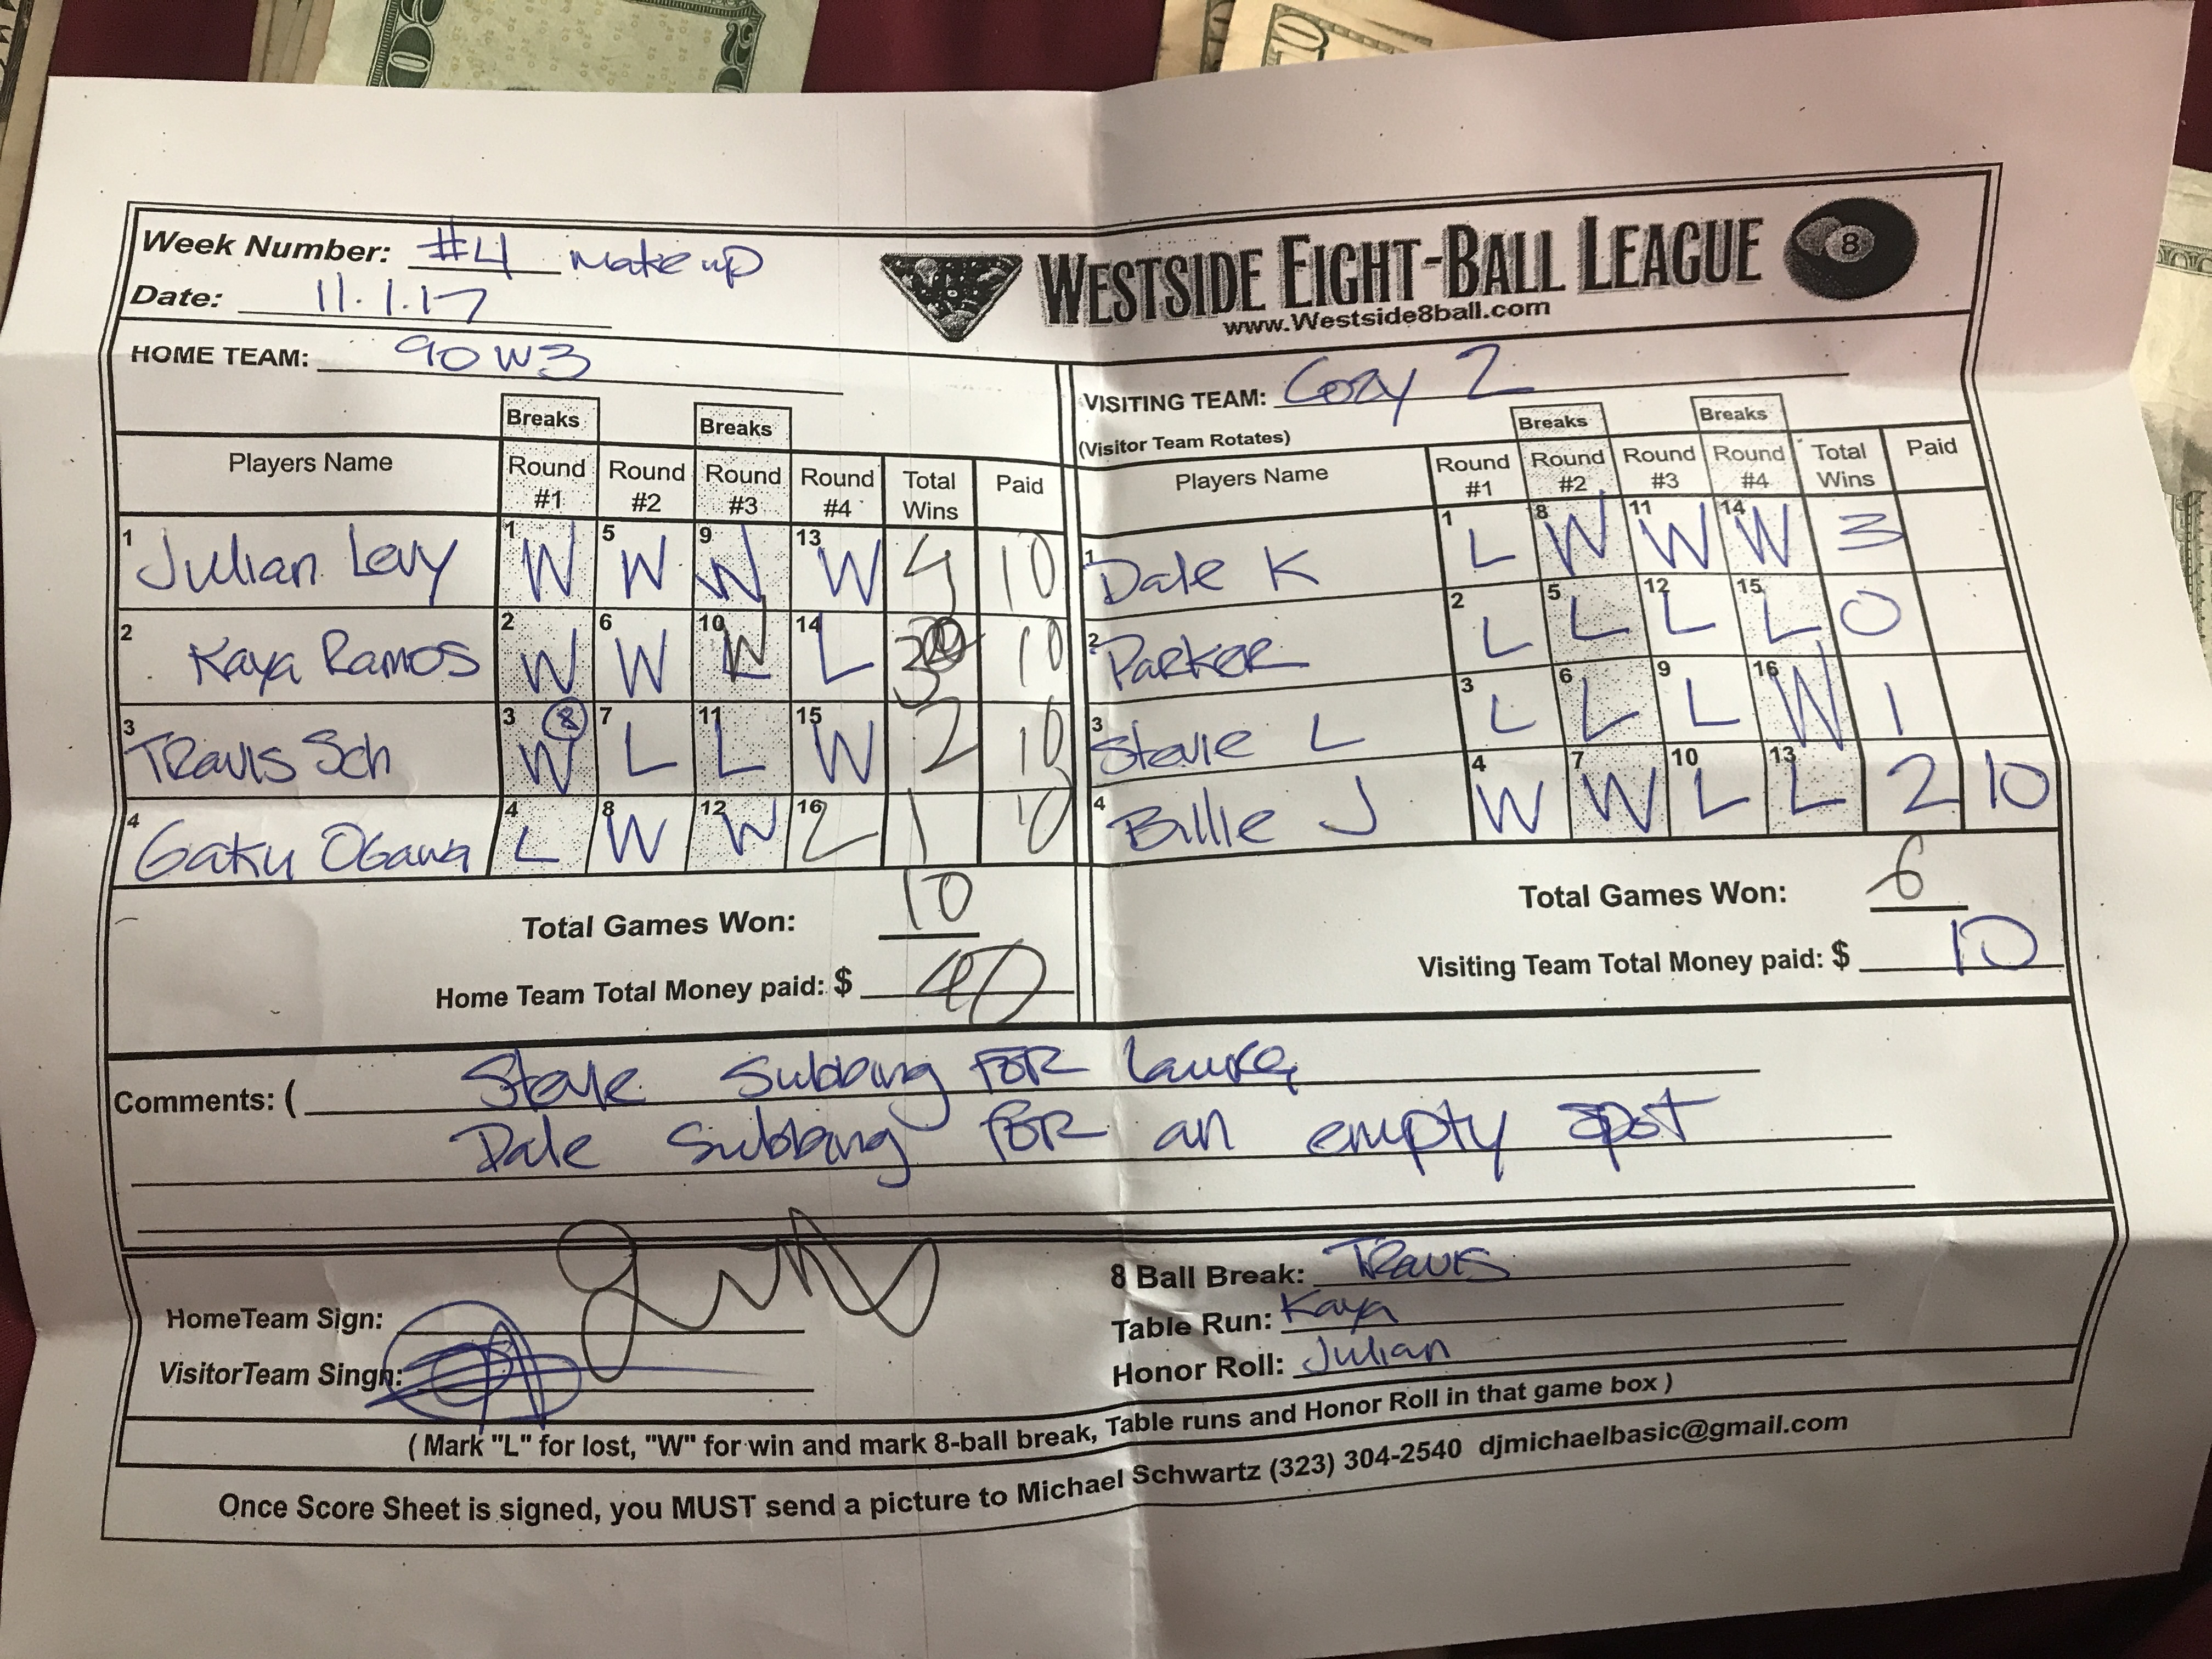 Week Number: #4 makeup
Date: 11.1.17
WESTSIDE EIGHT-BALL LEAGUE
www.Westside8ball.com
8
HOME TEAM: 90 W3
Breaks Breaks
Players Name Round #1 Round #2 Round #3 Round #4 Total Wins Paid
1 Julian Levy 1 W 5 W 9 W 13 W 4 10
2 Kaya Ramos 2 W 6 W 10 W 14 L 3 10
3 Travis Sch 3 W 8 7 L 11 L 15 W 2 10
4 Gaku Ogawa 4 L 8 W 12 W 16 L 1 10
Total Games Won: 10
Home Team Total Money paid: $ 40
VISITING TEAM: Cozy 2
(Visitor Team Rotates)
Breaks Breaks
Players Name Round #1 Round #2 Round #3 Round #4 Total Wins Paid
1 Dale K 1 L 8 W 11 W 14 W 3
2 Parker 2 L 5 L 12 L 15 L 0
3 Stevie L 3 L 6 L 9 L 16 W 1
4 Billie J 4 W 7 W 10 L 13 L 2 10
Total Games Won: 6
Visiting Team Total Money paid: $ 10
Comments: ( Stevie Subbing FOR
Dale Subbing FOR an empty spot
HomeTeam Sign:
VisitorTeam Singn:
8 Ball Break: Travis
Table Run: Kaya
Honor Roll: Julian
( Mark "L" for lost, "W" for win and mark 8-ball break, Table runs and Honor Roll in that game box )
Once Score Sheet is signed, you MUST send a picture to Michael Schwartz (323) 304-2540 djmichaelbasic@gmail.com
20
10